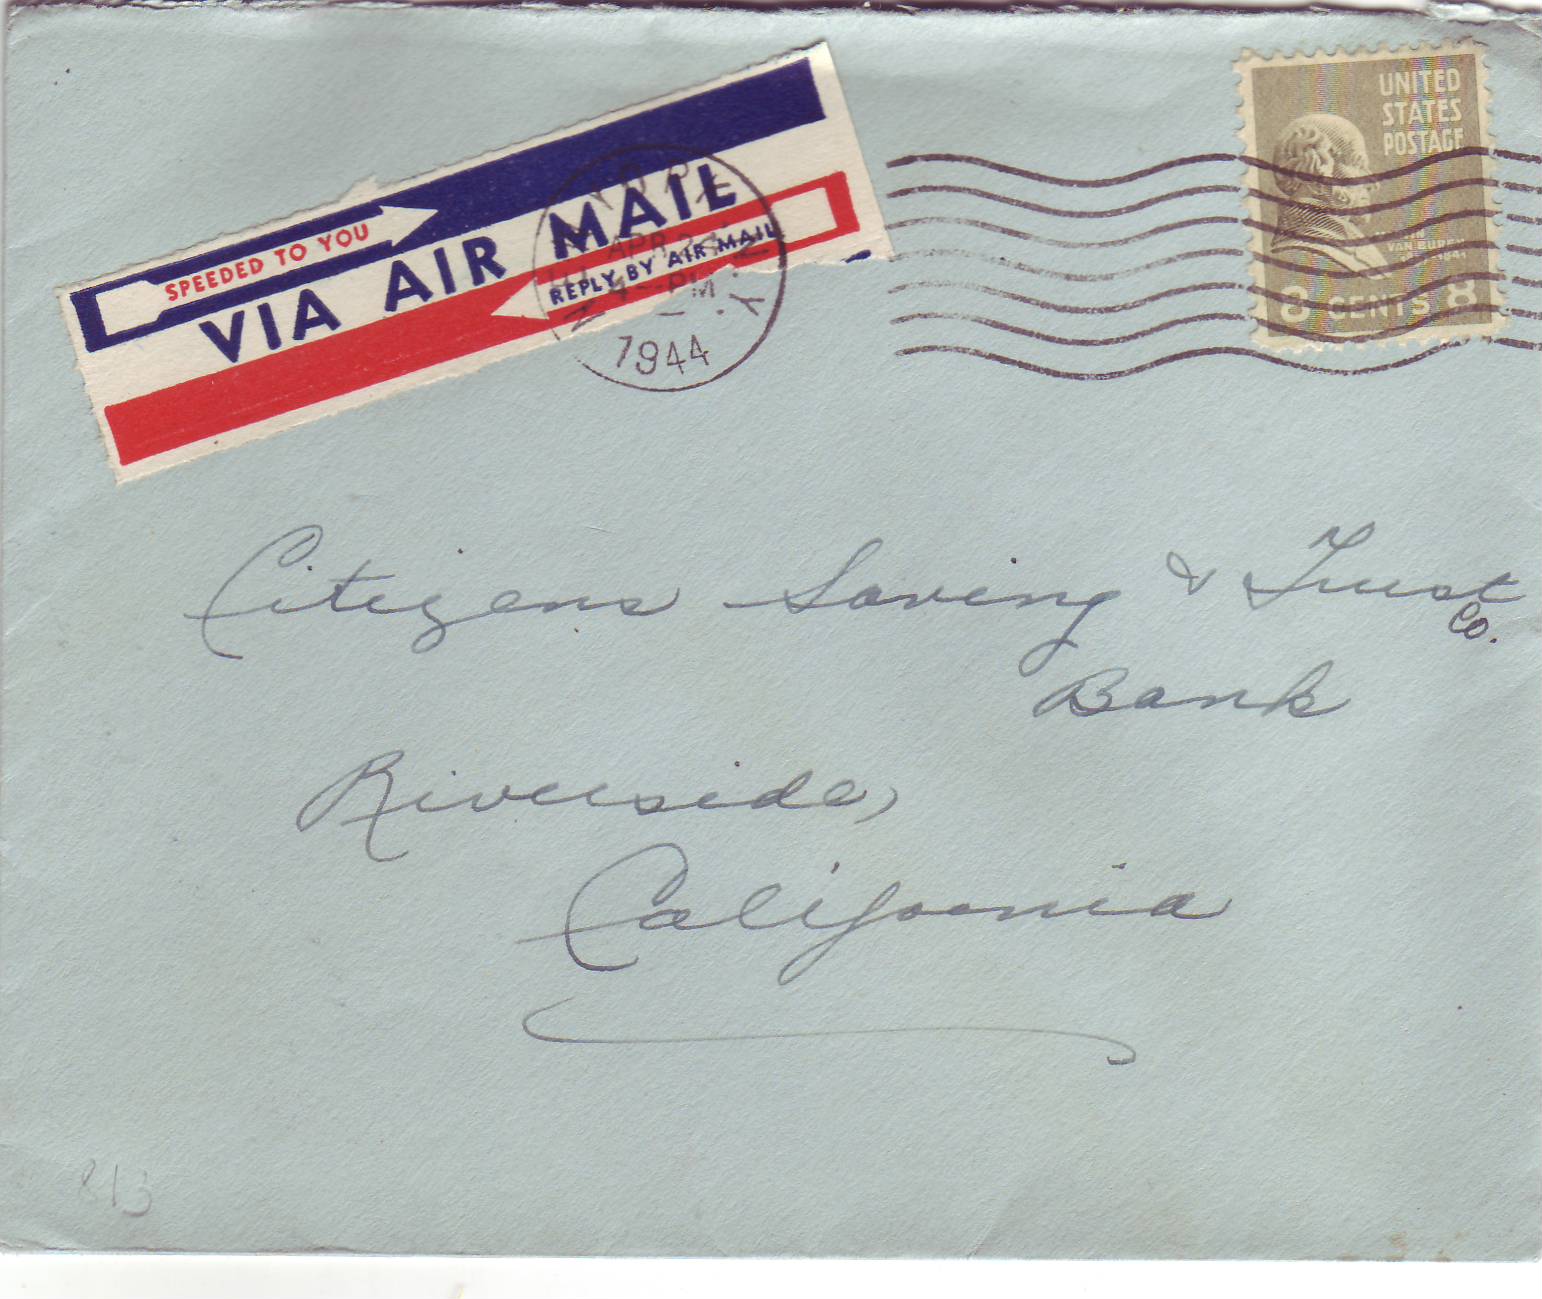 SPEEDED TO YOU
VIA AIR MAIL
REPLY BY AIR MAIL
APR
PM
1944
UNITED
STATES
POSTAGE
VAN BUREN
1841
8 CENTS 8
Citizens Saving & Trust
Co.
Bank
Riverside,
California
813